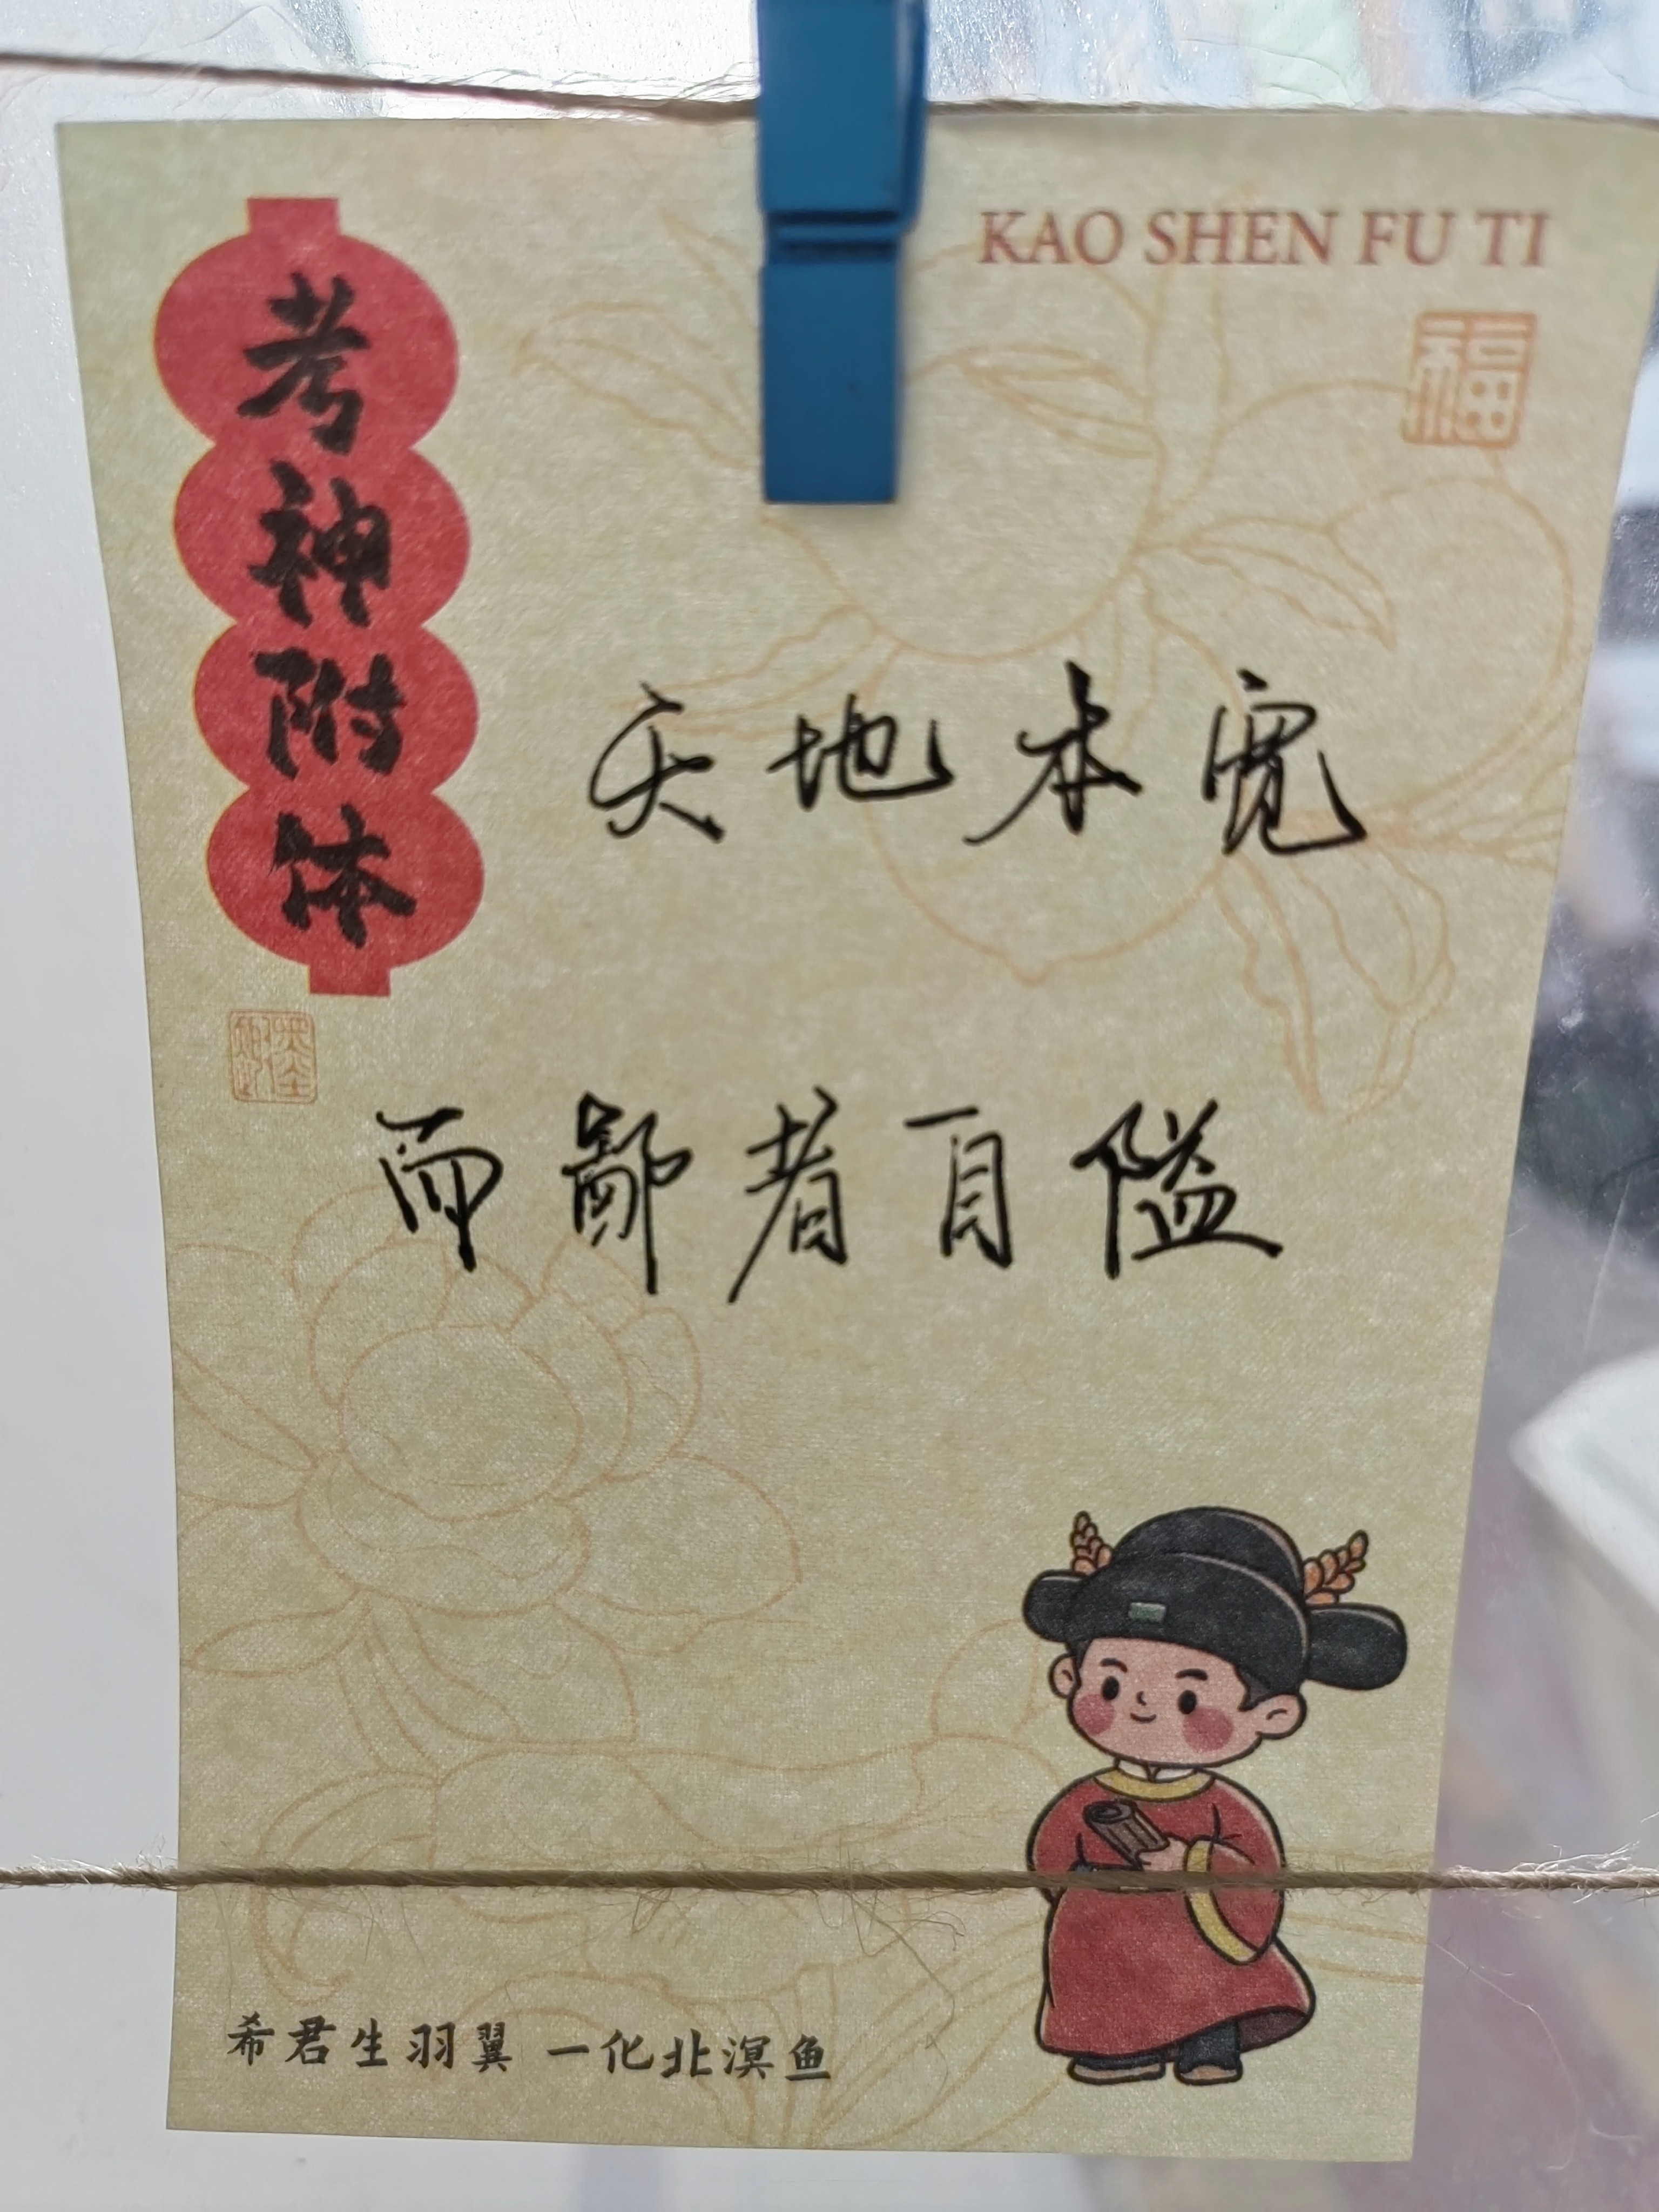 KAO SHEN FU TI
福
考神附体
天地本宽
而鄙者自隘
希君生羽翼 一化北溟鱼